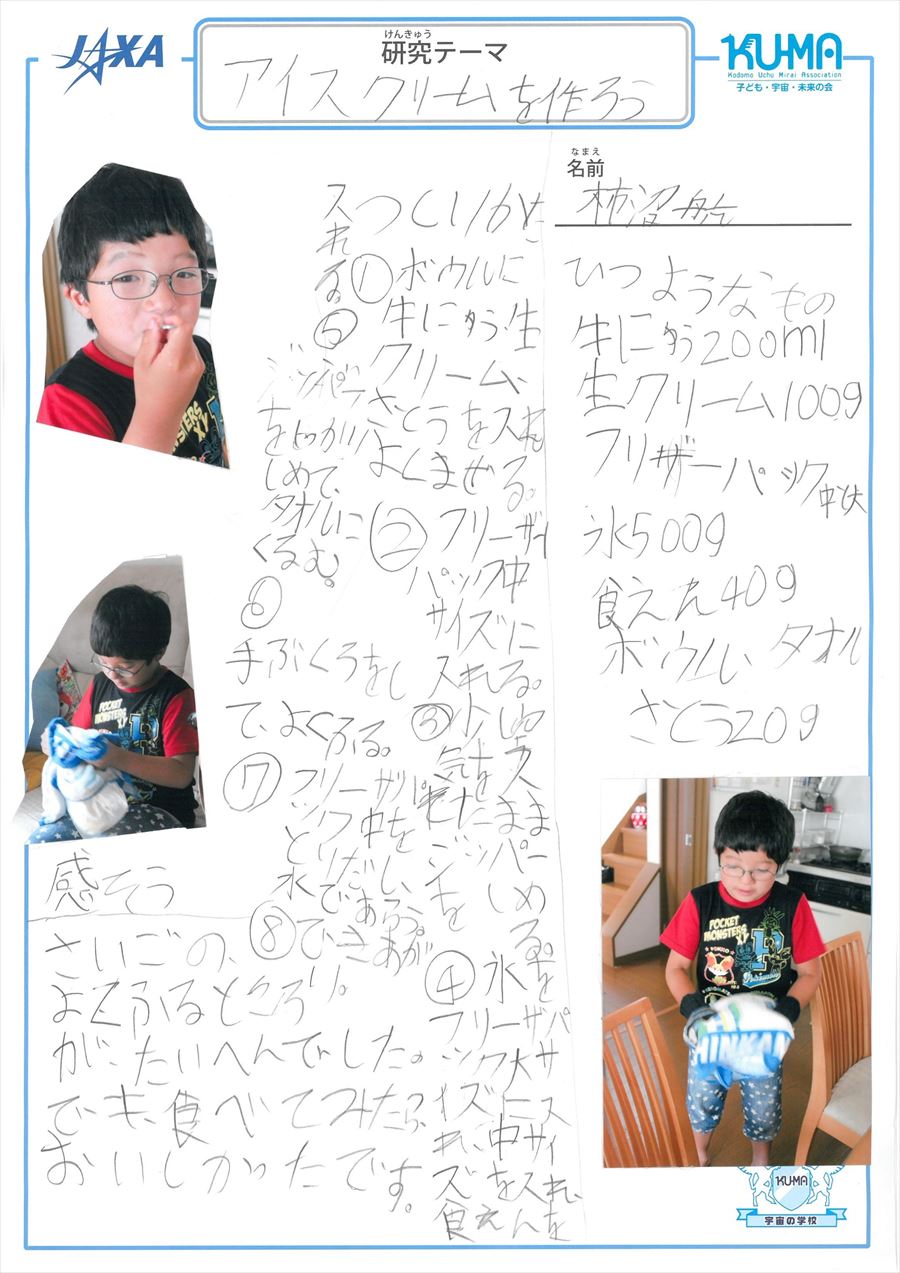 JAXA
けんきゅう
研究テーマ
アイスクリームを作ろう
KU-MA
Kodomo Uchu Mirai Association
子ども・宇宙・未来の会
なまえ
名前
柿沼航
ひつような もの
牛にゅう200ml
生クリーム100g
フリーザーパック中と大
氷500g
食えん40g
ボウル タオル
さとう20g
つくりかた
①ボウルに
牛にゅう、生
クリーム、
さとうを入れ
よくまぜる。
②フリーザー
パック中
サイズに
入れる。
③
空気を
ジッパー
を しめる。
④氷を
フリーザーパ
ック大サ
イズに入
れ、中サイ
ズを入れ、
食えんを
入れる
⑤
ジッパー
をしっかり
しめて、
タオルに
くるむ。
⑥
手ぶくろをし
て、よくふる。
⑦フリーザーパ
ック中を
とりだし、
氷であらう。
⑧できあが
り。
感そう
さいごの、
よくふるところ
が、たいへんでした。
でも、食べてみたら、
おいしかったです。
POCKET
MONSTERS
XY
POCKET
MONSTERS
XY
POCKET
MONSTERS
XY
HINKAN
KU-MA
宇宙の学校